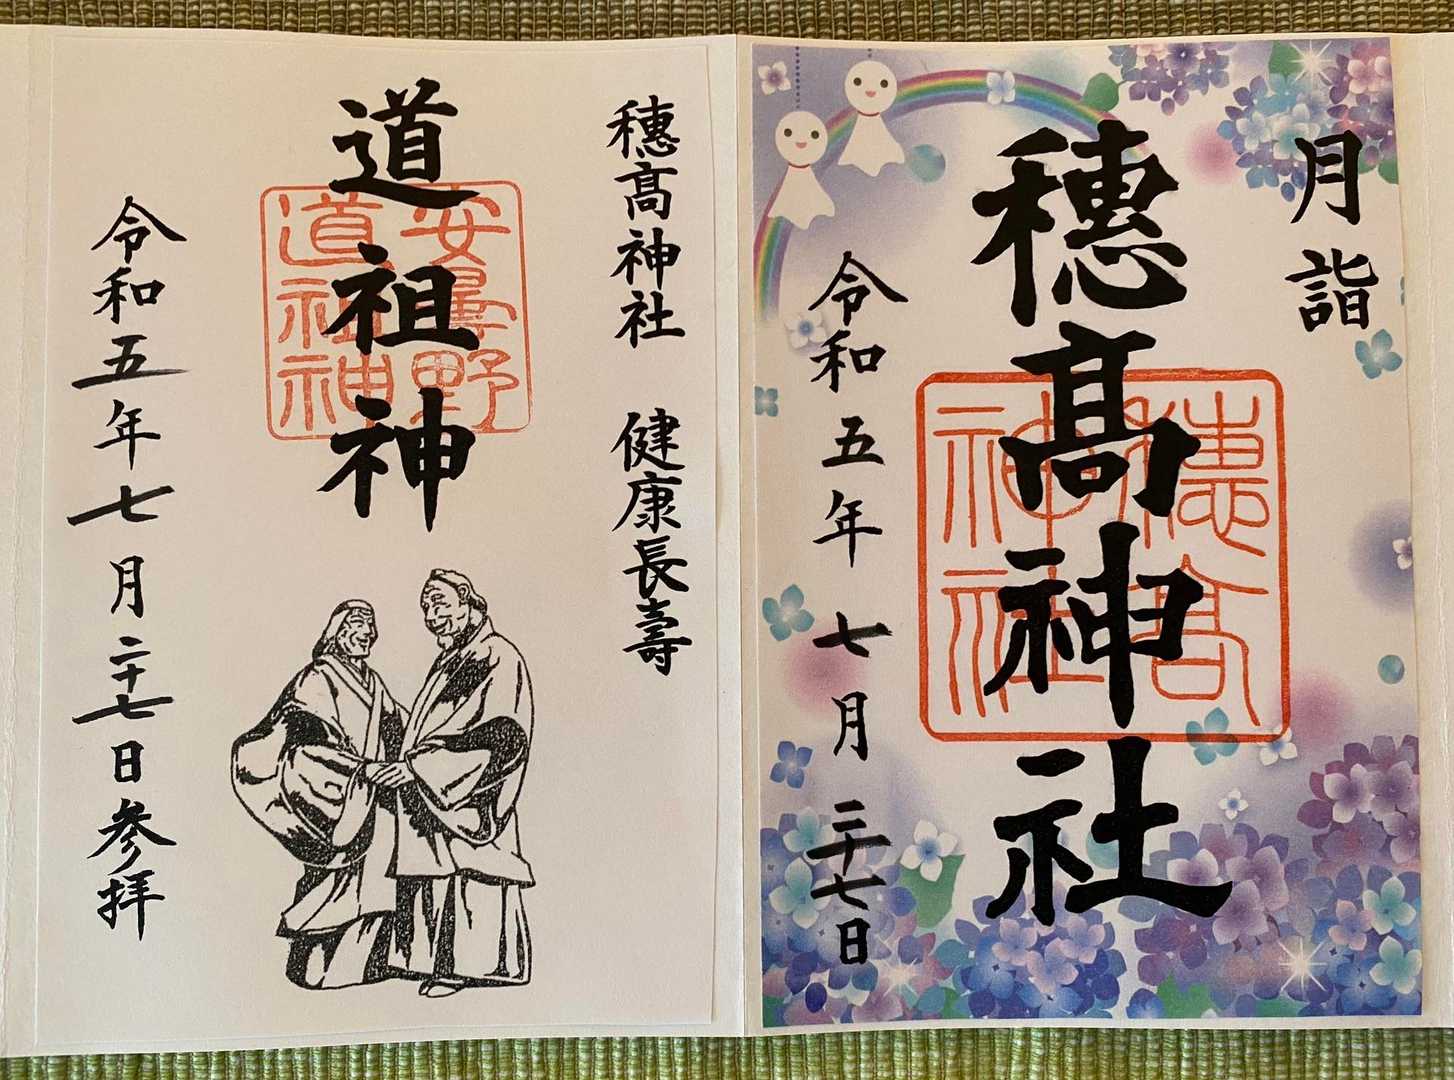 月詣
穗髙神社
穗髙神社
令和五年七月二十七日
穗髙神社　健康長壽
道祖神
安曇野道祖神
令和五年七月二十七日参拝